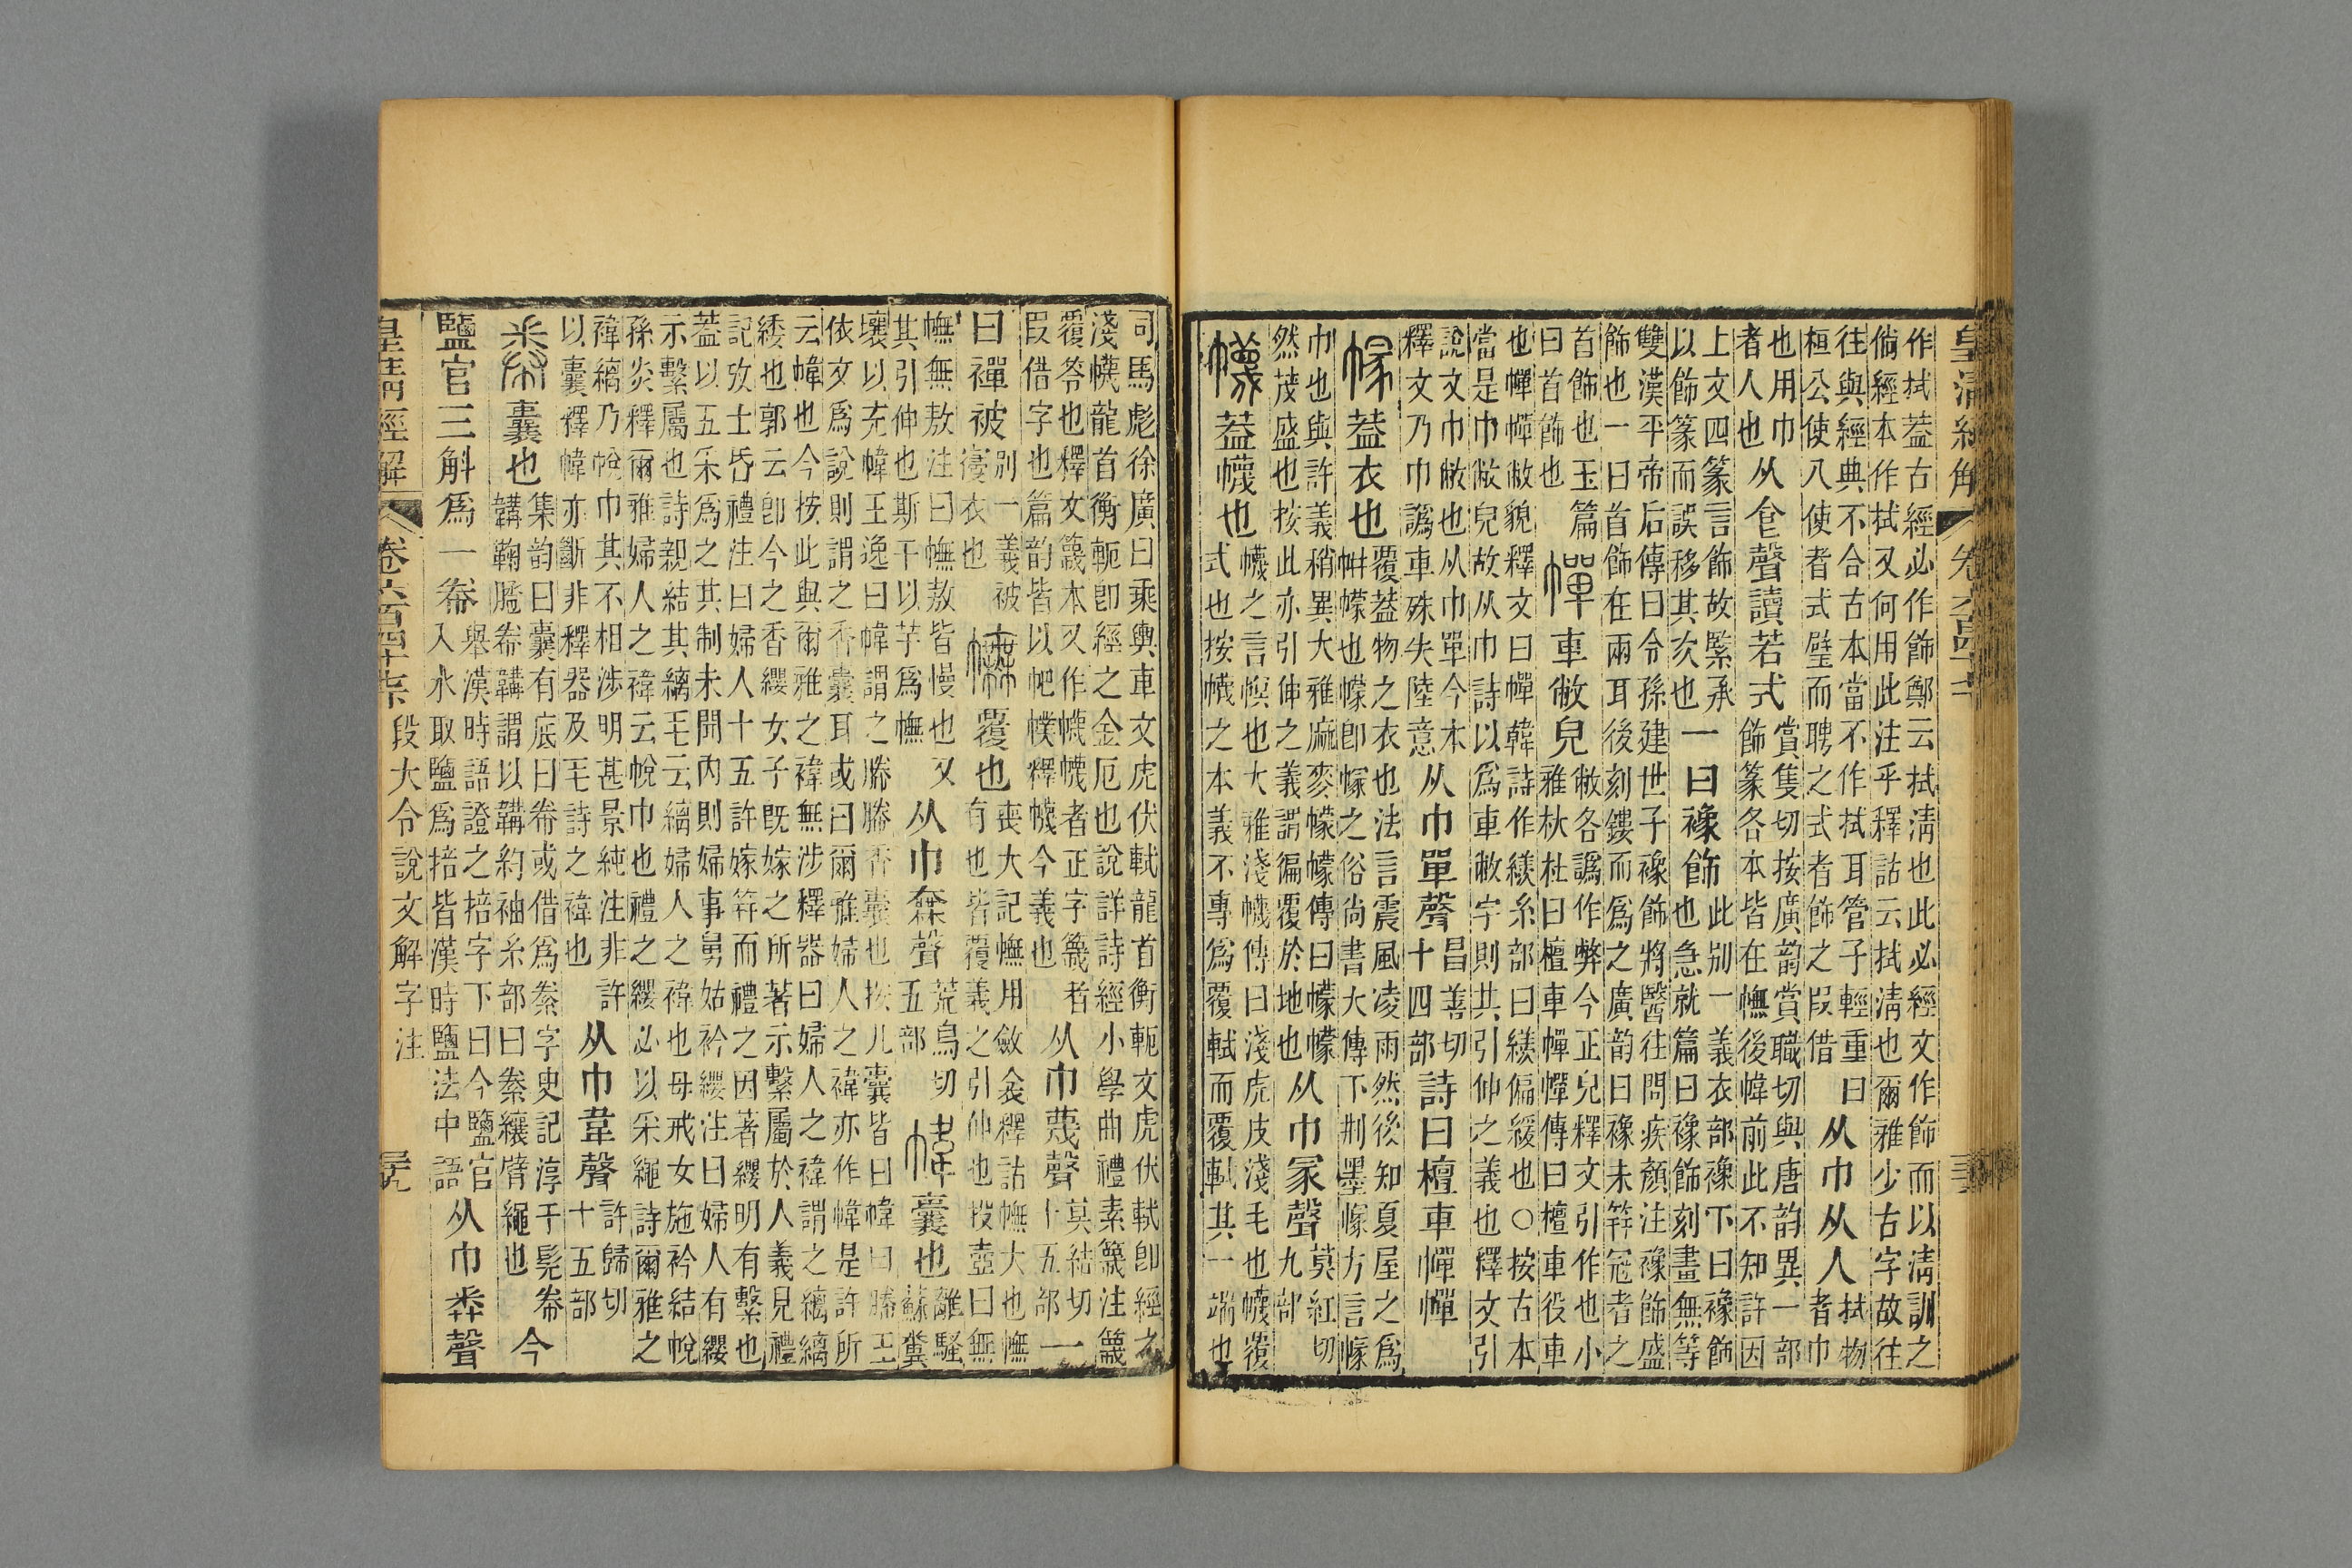 皇清經解 卷六百四十七
作拭蓋古經必作飾鄭云拭淸也此必經文作飾而以淸訓之
倘經本作拭又何用此注乎釋詁云拭淸也爾雅少古字故往
往與經典不合古本當不作拭耳管子輕重曰
桓公使八使者式璧而聘之式者飾之叚借
从巾从人
拭物
者巾
也用巾
者人也
从㑒聲讀若式
賞隻切按廣韵賞職切與唐韵異一部
飾篆各本皆在幠後幃前此不知許因
上文四篆言飾故緊承
以飾篆而誤移其次也
一曰襐飾
此別一義衣部襐下曰襐飾
也急就篇曰襐飾刻畫無等
雙漢平帝后傳曰令孫建世子襐飾將醫往問疾顏注襐飾盛
飾也一曰首飾在兩耳後刻鏤而爲之廣韵曰襐未筓冠者之
首飾也玉篇
曰首飾也
幝車敝皃
敝各譌作弊今正皃釋文引作也小
雅杕杜曰檀車幝幝傳曰檀車役車
也幝幝敝貌釋文曰幝韓詩作繟糸部曰繟偏緩也○按古本
當是巾敝皃故从巾詩以爲車敝字則其引伸之義也釋文引
說文巾敝也从巾單今本
釋文乃巾譌車殊失陸意
从巾單聲
昌善切
十四部
詩曰檀車幝幝
幏蓋衣也
覆蓋物之衣也法言震風凌雨然後知夏屋之爲
帲幪也幪卽幏之俗尚書大傳下刑墨幏方言幏
巾也與許義稍異大雅麻麥幪幪傳曰幪幪
然茂盛也按此亦引伸之義謂徧覆於地也
从巾冡聲
莫紅切
九部
幭蓋幭也
幭之言幎也大雅淺幭傳曰淺虎皮淺毛也幭覆
式也按幭之本義不專爲覆軾而覆軾其一端也
司馬彪徐廣曰乘輿車文虎伏軾龍首衡軛文虎伏軾卽經之
淺幭龍首衡軛卽經之金厄也說詳詩經小學曲禮素簚注簚
覆笭也釋文簚本又作幭幭者正字簚者
叚借字也篇韵皆以帊幞釋幭今義也
从巾蔑聲
莫結切
十五部
一
曰襌被
別一義被
寑衣也
幠覆也
喪大記幠用斂衾釋詁幠大也幠
有也皆覆義之引伸也投壺曰無
幠無敖注曰幠敖皆慢也又
其引伸也斯干以芋爲幠
从巾無聲
荒烏切
五部
幃囊也
離騷
蘇糞
壤以充幃王逸曰幃謂之幐幐香囊也按凡囊皆曰幃曰幐王
依文爲說則謂之香囊耳或曰爾雅婦人之褘亦作幃是許所
云幃也今按此與爾雅之褘無涉釋器曰婦人之褘謂之縭縭
緌也郭云卽今之香纓女子旣嫁之所著示繫屬於人義見禮
記攷士昏禮注曰婦人十五許嫁筓而禮之因著纓明有繫也
蓋以五采爲之其制未聞內則婦事舅姑衿纓注曰婦人有纓
示繫屬也詩親結其縭毛云縭婦人之褘也母戒女施衿結帨
孫炎釋爾雅婦人之褘云帨巾也禮之纓必以采繩詩爾雅之
褘縭乃帨巾其不相涉明甚景純注非許
以囊釋幃亦斷非釋器及毛詩之褘也
从巾韋聲
許歸切
十五部
帣囊也
集韵曰囊有底曰帣或借爲絭字史記淳于髡帣
韝鞠䠆帣韝謂以韝約袖糸部曰絭纕臂繩也
今
鹽官三斛爲一帣
舉漢時語證之掊字下曰今鹽官
入水取鹽爲掊皆漢時鹽法中語
从巾𢍏聲
皇淸經解 卷六百四十七 段大令說文解字注